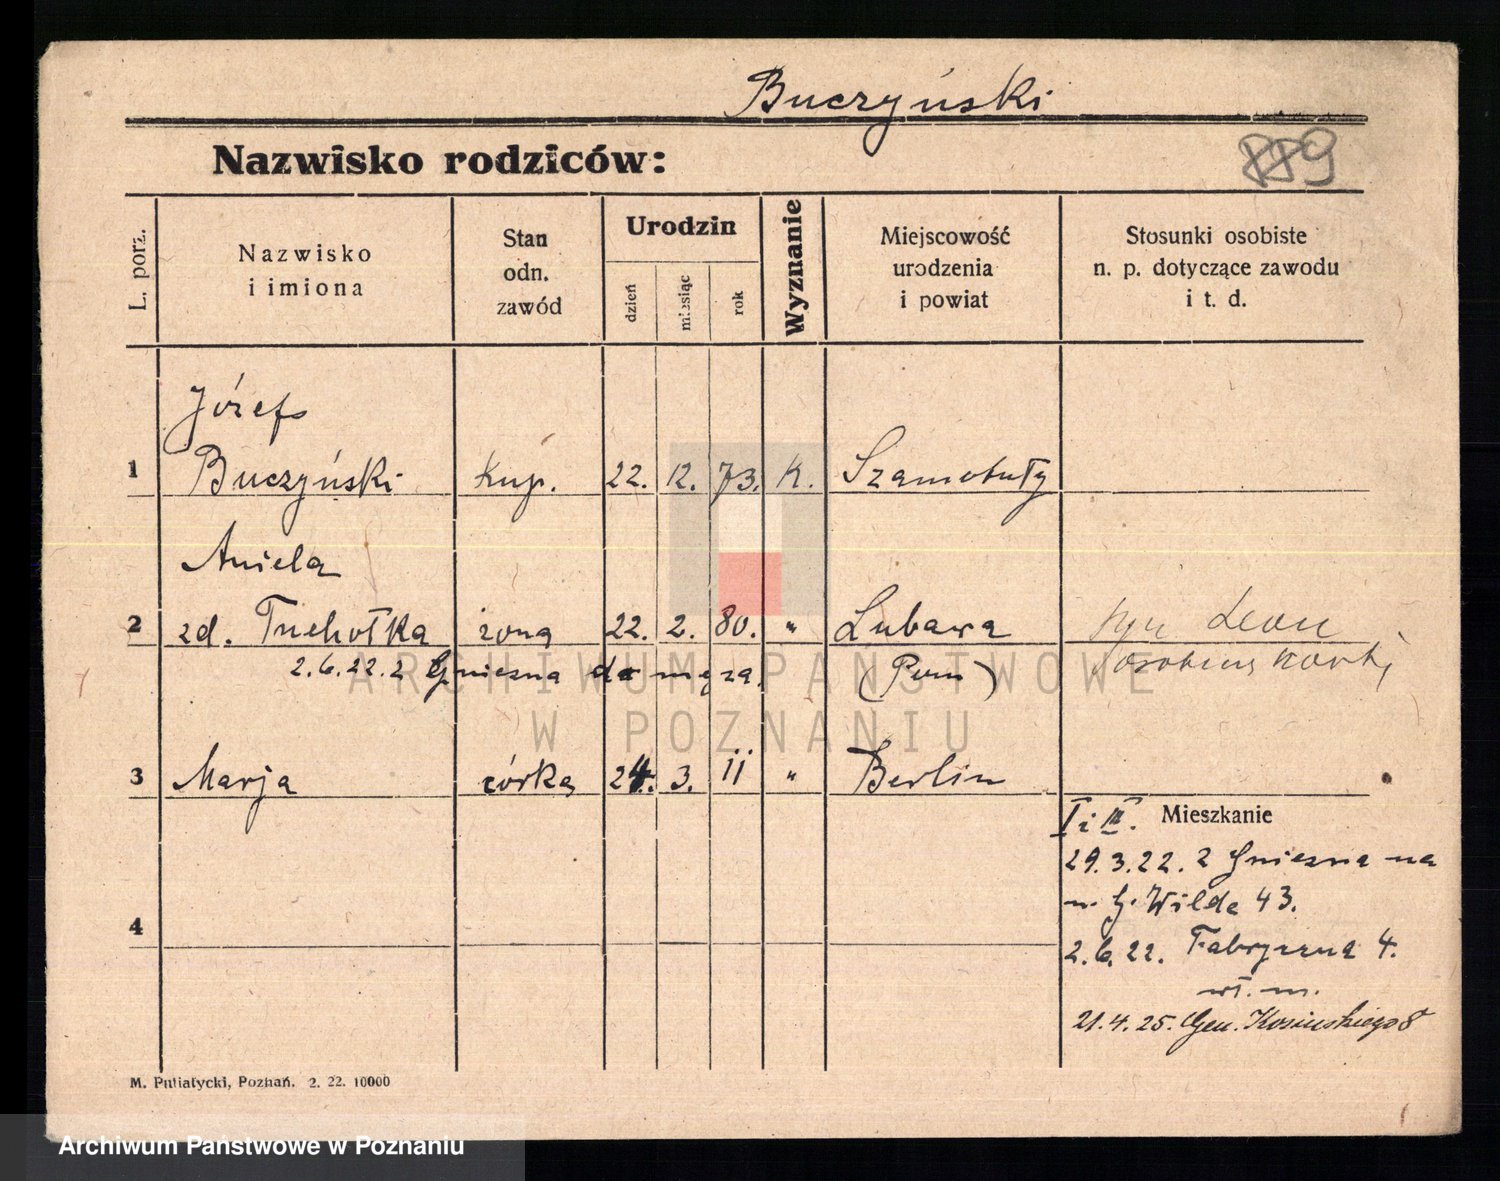 Buczyński
Nazwisko rodziców:
L. porz.
Nazwisko
i imiona
Stan
odn.
zawód
Urodzin
dzień
miesiąc
rok
Wyznanie
Miejscowość
urodzenia
i powiat
Stosunki osobiste
n. p. dotyczące zawodu
i t. d.
Józef
1 Buczyński kup. 22. 12. 73. K. Szamotuły
Aniela
2 zd. Tuchołka żona 22. 2. 80. " Lubawa syn Leon
2.6.22. z Gniezna do męża. (Pom) osobna kartk
3 Marja córka 24. 3. 11 " Berlin
I i III. Mieszkanie
29.3.22. z Gniezna na
G. Wilda 43.
4
2.6.22. Fabryczna 4.
wł. m.
21.4.25. Gen. Kosińskiego 8
M. Putiatycki, Poznań. 2. 22. 10000
ARCHIWUM PAŃSTWOWE
W POZNANIU
Archiwum Państwowe w Poznaniu